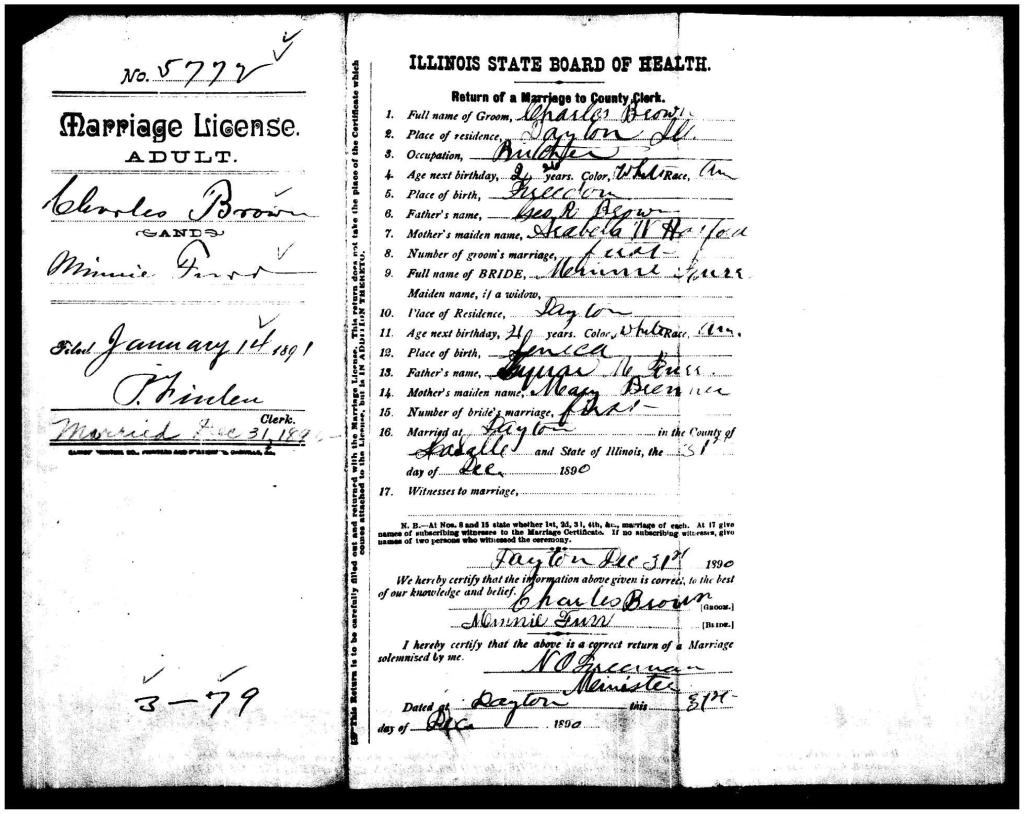 No. 5772
Marriage License.
ADULT.
Charles Brown
AND
Minnie Furr
Filed January 14 1891
Clerk.
Married Dec 31, 189
This Return is to be carefully filled out and returned with the Marriage License. This return does not take the place of the Certificate which
comes attached to the License, but is IN ADDITION THERETO.
3-79
ILLINOIS STATE BOARD OF HEALTH.
Return of a Marriage to County Clerk.
1. Full name of Groom, Charles Brown
2. Place of residence, Dayton Ill
3. Occupation, Butcher
4. Age next birthday, years. Color, White Race, Am
5. Place of birth, Freedom
6. Father's name, Geo R Brown
7. Mother's maiden name, Arabela W
8. Number of groom's marriage, first
9. Full name of BRIDE, Minnie Furr
Maiden name, if a widow,
10. Place of Residence, Dayton
11. Age next birthday, years. Color, White Race, Am.
12. Place of birth, Seneca
13. Father's name, Furr
14. Mother's maiden name, Mary
15. Number of bride's marriage, first
16. Married at Dayton in the County of
LaSalle and State of Illinois, the 31st
day of Dec. 1890
17. Witnesses to marriage,
N. B.—At Nos. 8 and 15 state whether 1st, 2d, 3d, 4th, &c., marriage of each. At 17 give
names of subscribing witnesses to the Marriage Certificate. If no subscribing witnesses, give
names of two persons who witnessed the ceremony.
Dayton Dec 31st 1890
We hereby certify that the information above given is correct, to the best
of our knowledge and belief. Charles Brown [GROOM.]
Minnie Furr [BRIDE.]
I hereby certify that the above is a correct return of a Marriage
solemnised by me. N O Freeman
Minister
Dated at Dayton this 31st
day of Dec 1890